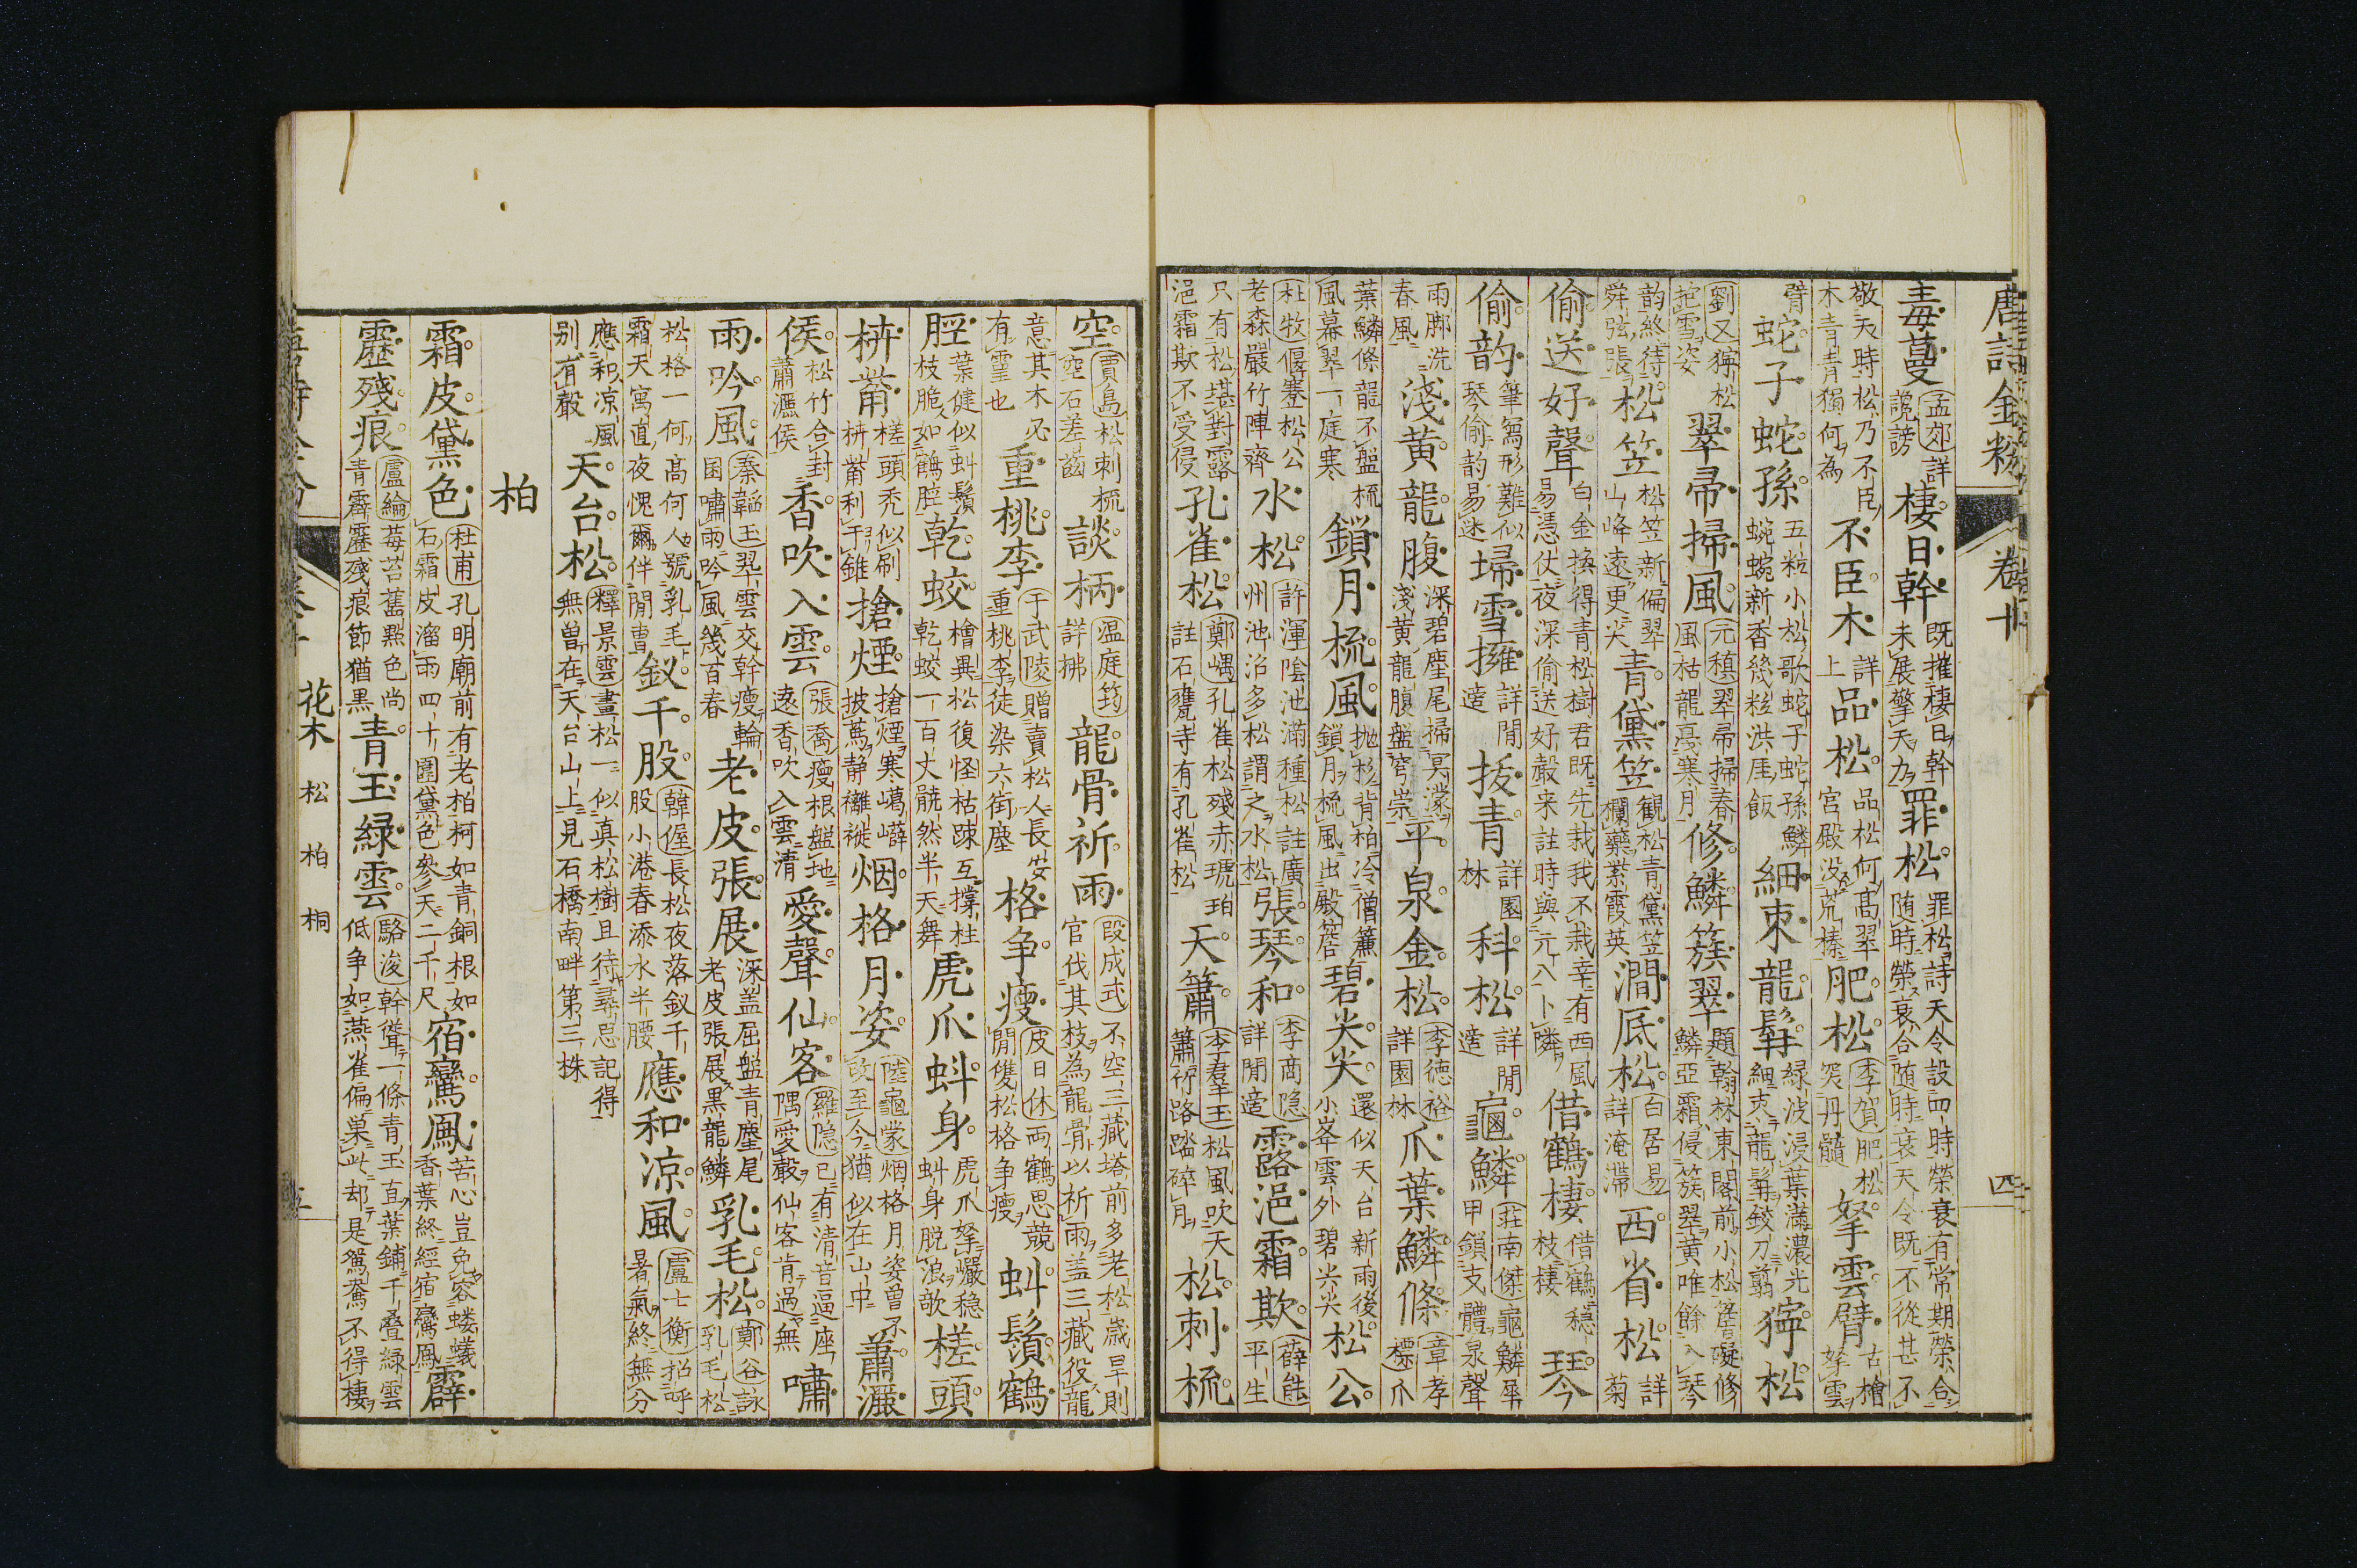 唐詩金粉 卷十 四
毒蔓 孟郊 詳讒謗 棲日幹 既摧棲日幹未展擎天力 罪松 罪松詩天令設四時榮衰有常期榮合随時榮衰合随時衰天令既不從甚不
敬天時松乃不臣木青青獨何為 不臣木 詳上 品松 品松何高翠宮殿没荒榛 肥松 李賀 肥松突丹髓 拏雲臂 古檜拏雲
臂 蛇子蛇孫 五粒小松歌蛇子蛇孫鱗蜿蜿新香幾粒洪厓飯 細束龍髯 緑波浸葉滿濃光細束龍髯鉸刀翦 獰松
劉叉 獰松抱雪姿 翠帚掃風 元稹 翠帚掃春風枯龍憂寒月 修鱗簇翠 題翰林東閣前小松簷礙修鱗亞霜侵簇翠黄唯餘入琴
韵終待舜弦張 松笠 松笠新偏翠山峰遠更尖 青黛笠 觀松青黛笠欄藥紫霞英 澗底松 白居易 詳淹滯 西省松 詳菊
偷送好聲 白金換得青松樹君既先栽我不栽幸有西風易憑仗夜深偷送好聲来註時與元八卜隣 借鶴棲 借鶴穏枝棲 琴
偷韵 筆寫形難似琴偷韵易迷 埽雪擁 詳閒適 拔青 詳園林 科松 詳閒適 龜鱗 莊南傑 龜鱗犀甲鎖支體泉聲
雨脚洗春風 淺黄龍腹 深碧塵尾掃冥濛淺黄龍腹盤穹崇 平泉金松 李徳裕 詳園林 爪葉鱗條 章孝標 爪
葉鱗條龍不盤梳風幕翠一庭寒 鎖月梳風 抛杉背柏冷僧簾鎖月梳風出殿簷 碧尖尖 還似天台新雨後小峯雲外碧尖尖 松公
杜牧 偃蹇松公老森嚴竹陣齊 水松 許渾 隂池滿種松註廣州池沼多松謂之水松 張琴和 李商隐 詳閒適 露浥霜欺 薛能 平生
只有松堪對露浥霜欺不受侵 孔雀松 鄭嵎 孔雀松殘赤琥珀註石甕寺有孔雀松 天簫 李羣玉 松風吹天簫竹路踏碎月 松刺梳
空 賈島 松刺梳空石差齒 談柄 温庭筠 詳拂 龍骨祈雨 段成式 不空三藏塔前多老松嵗旱則官伐其枝為龍骨以祈雨蓋三藏役龍
意其木必有靈也 重桃李 于武陵 贈賣松人長安重桃李徒染六街塵 格争瘦 皮日休 両鶴思競閒雙松格争瘦 蚪鬚鶴
脛 葉健似蚪鬚枝脆如鶴脛 乾蛟 檜異松復怪枯踈互撑柱乾蛟一百丈骯然半天舞 虎爪蚪身 虎爪拏巖穏蚪身脱浪欹 槎頭
枿觜 槎頭秃似刷枿觜利于錐 搶煙 搶煙寒嶱嶭披蔫静襳褷 烟格月姿 陸龜蒙 烟格月姿曾不改至今猶似在山中 蕭灑
侯 松竹合封蕭灑侯 香吹入雲 張喬 瘦根盤地遠香吹入雲清 愛聲仙客 羅隐 已有清音逼座隅愛聲仙客肯過無 嘯
雨吟風 秦韜玉 翠雲交幹瘦輪囷嘯雨吟風幾百春 老皮張展 深蓋屈盤青塵尾老皮張展黒龍鱗 乳毛松 鄭谷 詠乳毛松
松格一何高何人號乳毛霜天寓直夜愧爾伴閒曹 釵千股 韓偓 長松夜落釵千股小港春添水半腰 應和涼風 盧士衡 招呼暑氣終無分
應和涼風别有聲 天台松 釋景雲 畫松一似真松樹且待尋思記得無曽在天台山上見石橋南畔第三株
柏
霜皮黛色 杜甫 孔明廟前有老柏柯如青銅根如石霜皮溜雨四十圍黛色參天二千尺 宿鸞鳳 苦心豈免容螻蟻香葉終經宿鸞鳳 霹
靂殘痕 盧綸 莓苔舊點色尚青霹靂殘痕節猶黒 青玉緑雲 駱浚 幹聳一條青玉直葉鋪千疊緑雲低争如燕雀偏巢此却是鴛鴦不得棲
花木 松 柏 桐